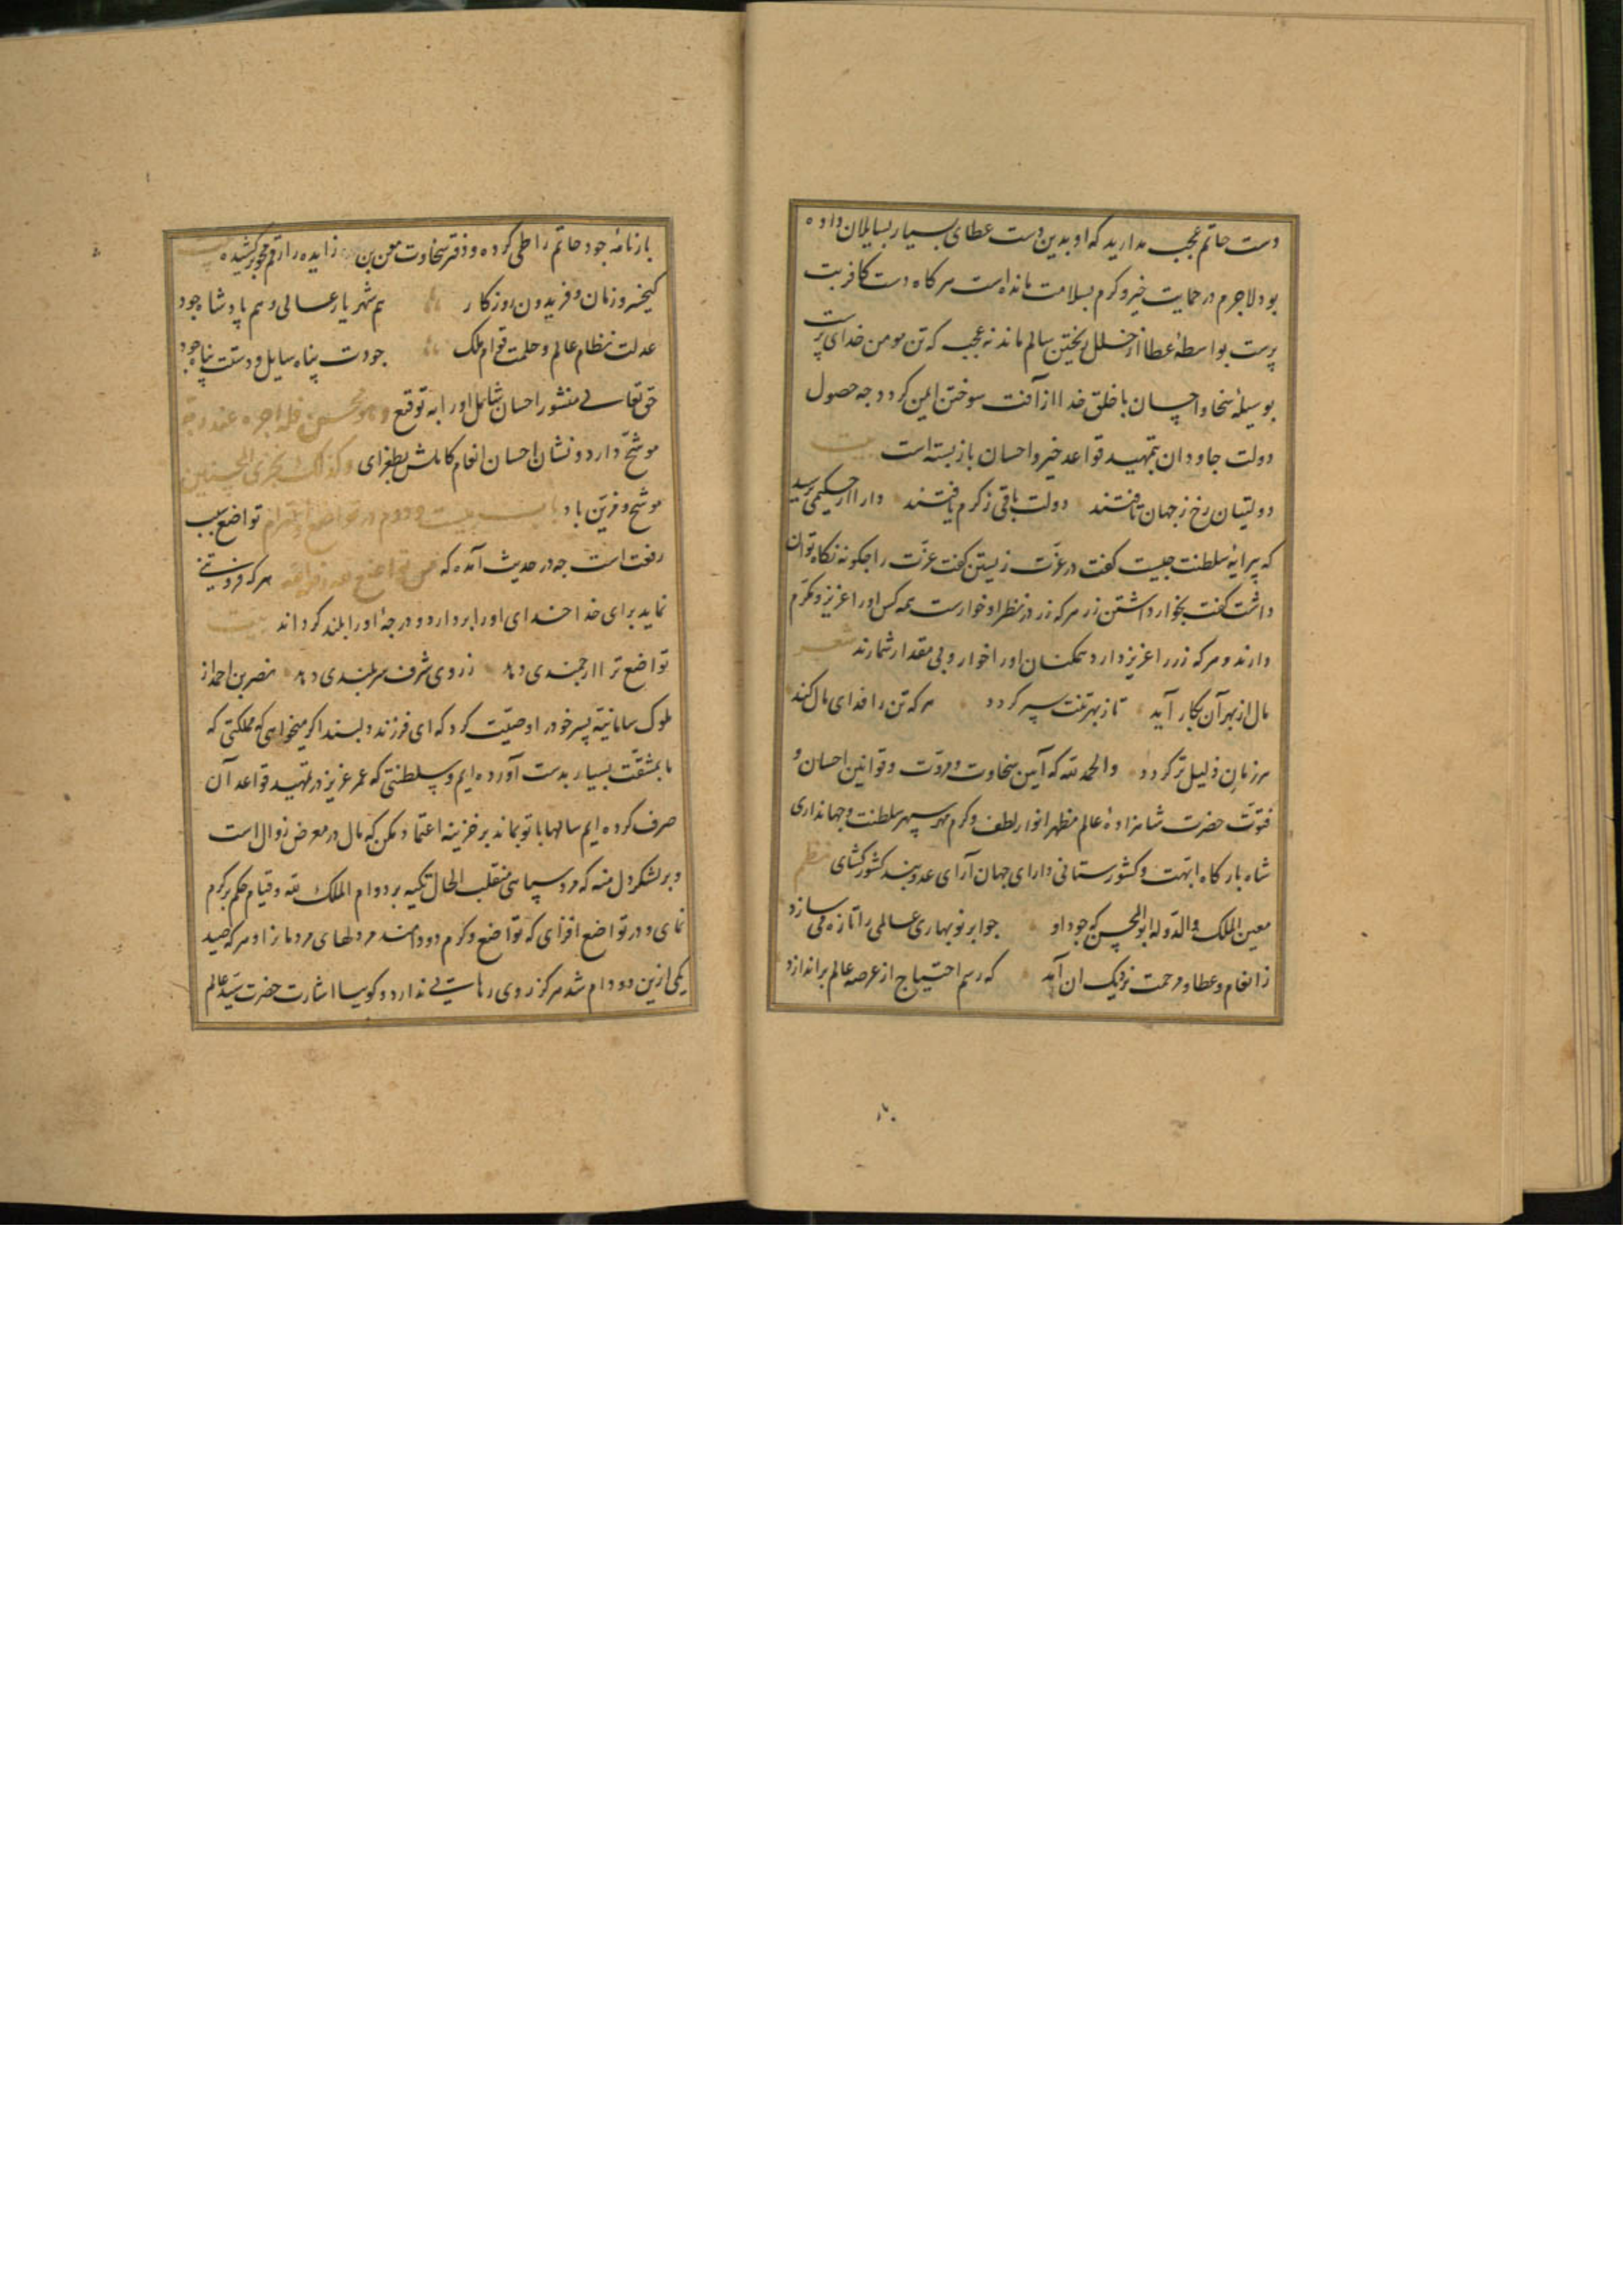 دست حاتم عجب مدارید که او بدین دست عطای بسیار بسایلان داده
بود لاجرم در حمایت خیر و کرم بسلامت مانده است هرکاه دست کافر بت
پرست بواسطهٔ عطا از خلل ریختن سالم ماند نه عجب که تن مومن خدای پرست
بوسیلهٔ سخا و احسان با خلق خدا از آفت سوختن ایمن کردد جه حصول
دولت جاودان بتمهید قواعد خیر و احسان باز بسته است بیت
دولتیان رخ ز جهان تافتند دولت باقی ز کرم یافتند دارا از حکیمی پرسید
که پیرایهٔ سلطنت جیست کفت در عزّت زیستن کفت عزّت را جکونه نکاه توان
داشت کفت بخوار داشتن زر هرکه زر در نظر او خوارست همه کس او را عزیز و مکرّم
دارند و هرکه زر را عزیز دارد همکنان او را خوار و بی مقدار شمارند شعر
مال از بهر آن بکار آید تا ز بهر تنت سپر کردد هرکه تن را فدای مال کند
هر زمان ذلیل تر کردد والحمد لله که آیین سخاوت و مروّت و قوانین احسان و
فتوّت حضرت شاهزادهٔ عالم مظهر انوار لطف و کرم مهر سپهر سلطنت و جهانداری
شاه بارکاه ابهت و کشورستانی دارای جهان آرای عدوبند کشورکشای نظم
معین الملک والدوله ابوالمحسن که جود او جو ابر نوبهاری عالمی را تازه می سازد
ز انعام و عطا و مرحمت نزدیک ان آمد که رسم احتیاج از عرصه عالم براندازد
بازنامهٔ جود حاتم را طی کرده و دفتر سخاوت معن بن زایده را رقم محو برکشیده بیت
کیخسرو زمان و فریدون روزکار هم شهریار عالی و هم پادشاه جود
عدلت نظام عالم و حلمت قوام ملک جودت پناه سایل و دستت پناه جود
حق تعالی منشور احسان شامل او را به توقیع و هو محسن فله اجره عند ربه
موشّح دارد و نشان احسان انعام کاملش بطغرای و کذلک نجزی المحسنین
موشح و مزیّن باد باب بیست و دوم در تواضع و احترام تواضع سبب
رفعت است جه در حدیث آمده که من تواضع لله رفعه الله هرکه فروتنی
نماید برای خدا خدای او را بردارد و درجهٔ او را بلند کرداند بیت
تواضع ترا ارجمندی دهد ز روی شرف سربلندی دهد نصر بن احمد از
ملوک سامانیّه پسر خود را وصیّت کرد که ای فرزند دلبند اکر میخواهی که مملکتی که
ما بمشقت بسیار بدست آورده ایم و سلطنتی که عمر عزیز در تمهید قواعد آن
صرف کرده ایم سالها با تو بماند بر خزینه اعتماد مکن که مال در معرض زوال است
و بر لشکر دل منه که مرد سپاهی منقلب الحال تکیه بر دوام الملک لله و قیام حکم بر کرم
نمای و در تواضع افزای که تواضع و کرم دو دامند مر دلهای مردمانرا و هرکه صید
یکی ازین دو دام شد هرکز روی رهایی ندارد و کوییا اشارت حضرت سیّد عالم